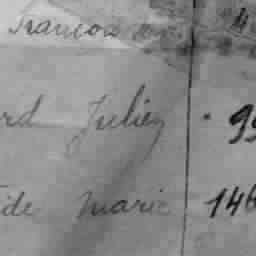 Francois
rd Julien 99
de Marie 146